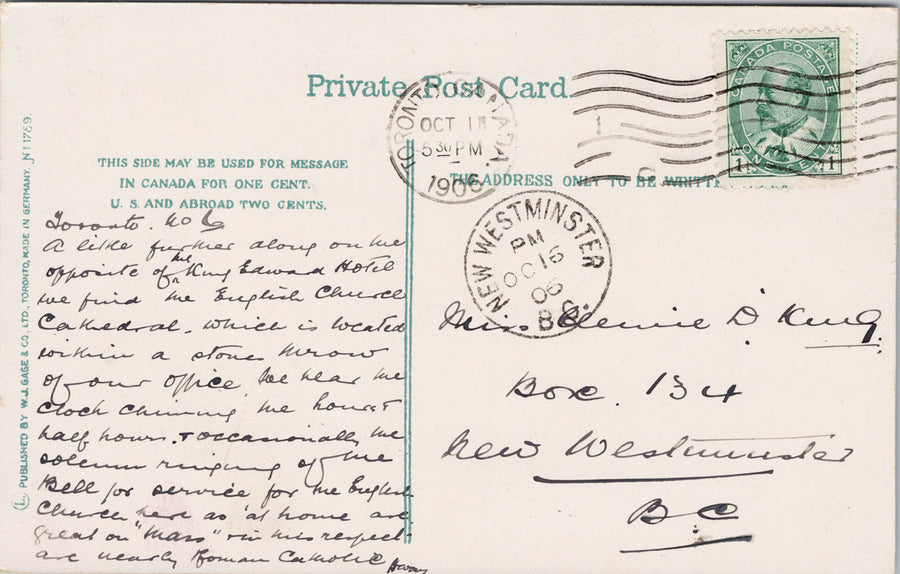 Private Post Card.
TORONTO, CANADA.
OCT 1
5 30 PM
1906
CANADA POSTAGE
1 ONE CENT 1
THIS SIDE MAY BE USED FOR MESSAGE
IN CANADA FOR ONE CENT.
U. S. AND ABROAD TWO CENTS.
THE ADDRESS ONLY TO BE WRITTE
NEW WESTMINSTER
PM
OC 16
06
B.C.
PUBLISHED BY W. J. GAGE & CO. LTD., TORONTO, MADE IN GERMANY. No 1789.
Toronto. No 6
A little further along on the
opposite of the King Edward Hotel
we find the English Church
Cathedral, which is located
within a stones throw
of our office. We hear the
clock chiming the hours &
half hours. & occasionally the
solemn ringing of the
Bell for service for the English
Church here as at home are
great on "Mass" & in this respect
are nearly Roman Catholic
D. King
Box. 134
New Westminster
BC